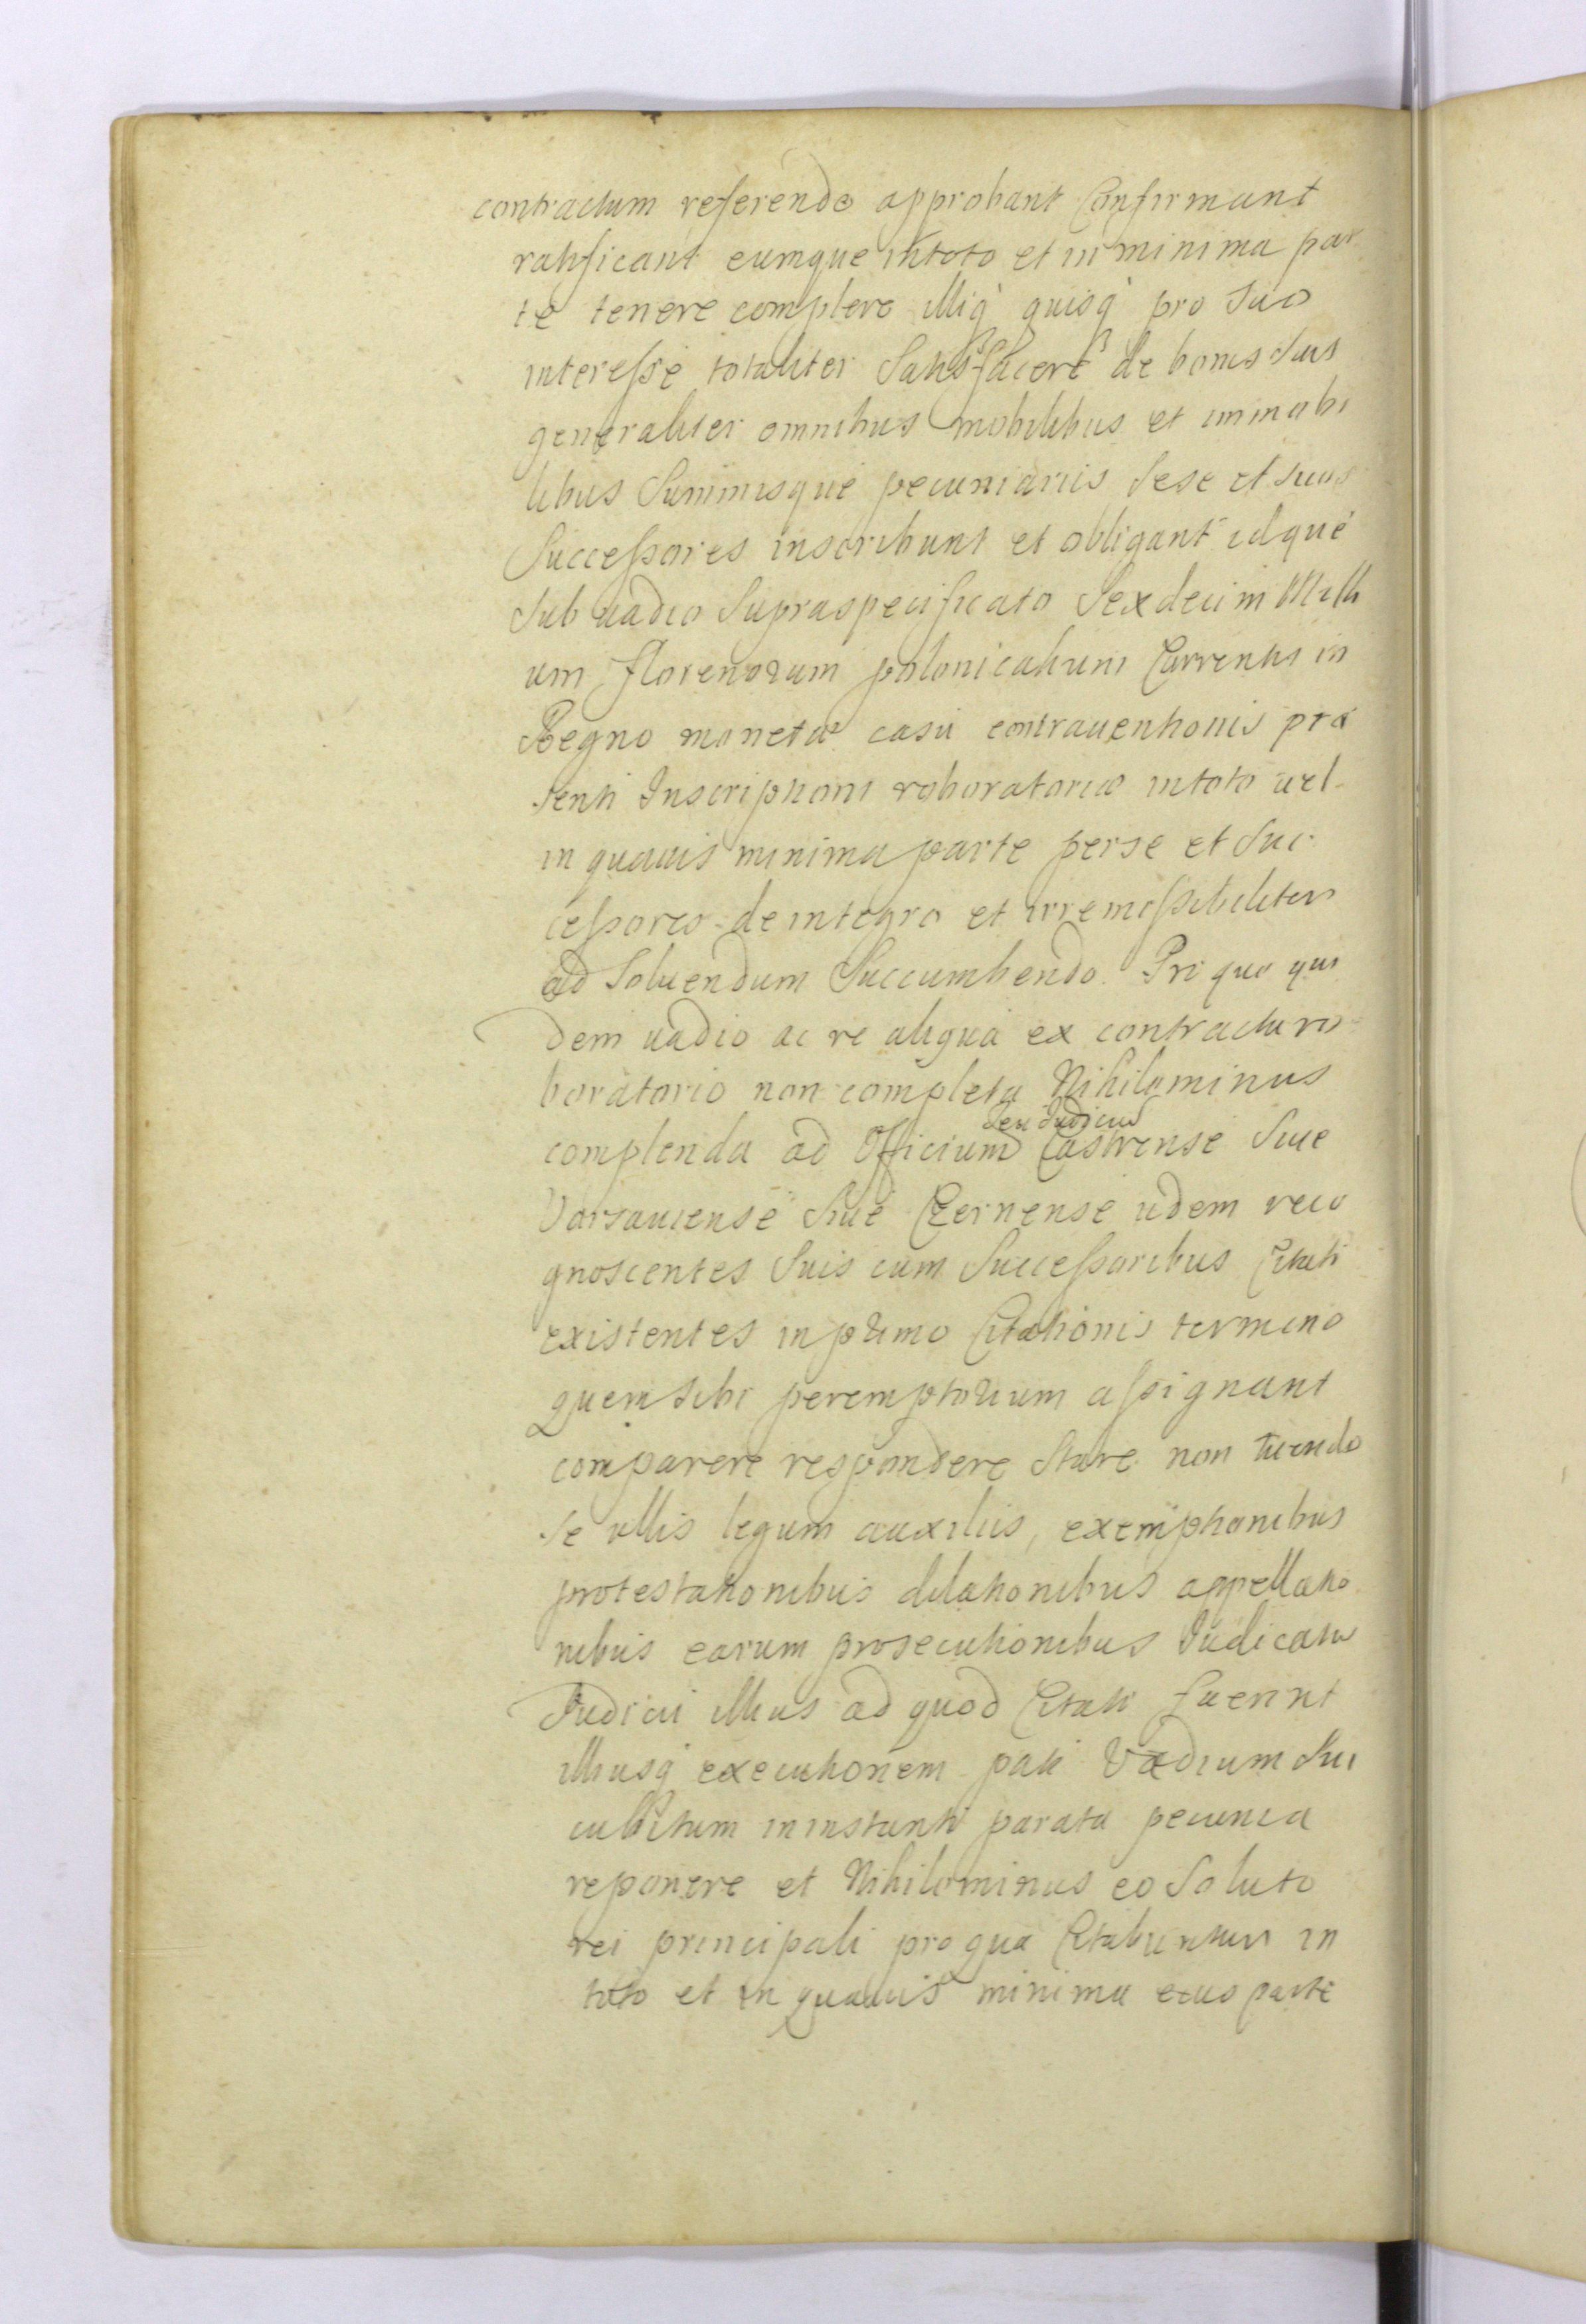 contractum referendo approbant Confirmant
ratificant eumque in toto et in minima par
te tenere complere illiq́ quisq́ pro suo
interesse totaliter Satisfacere de bonis suis
generaliter omnibus mobilibus et immobi
libus Summisque pecuniariis sese et suos
Successores inscribunt et obligant idque
Sub vadio Supraspecificato Sexdecim Milli
um Florenorum polonicalium Currentis in
Regno monetæ casu contrauentionis præ
senti Inscriptioni roboratoriæ in toto uel
in quauis minima parte per se et Suc
cessores de integro et irremissibiliter
ad Soluendum Succumbendo. Pri quo qui
dem uadio ac re aliqua ex contractu ro
boratorio non completa Nihilominus
complenda ad Officium seu Iudicium Castrense Siue
Varsauiense Siue Czernense iidem reco
gnoscentes Suis cum Successoribus Citati
existentes in primo Citationis termino
quem sibi peremptorium assignant
comparere respondere Stare non tuendo
se ullis legum auxiliis, exemptionibus
protestationibus dilationibus appellatio
nibus earum prosecutionibus Iudicatu
Iudicii illius ad quod Citati fuerint
illiusq́ executionem pati Vadium Suc
cubitum in instanti parata pecunia
reponere et Nihilominus eo Soluto
rei principali pro qua Citabuntur in
toto et in quauis minima eius parte